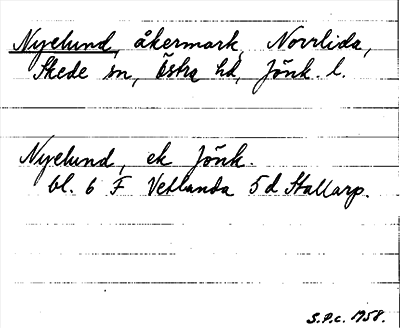 Nyelund, åkermark, Norrlida,
Skede sn, Östra hd, Jönk. l.
Nyelund, ek Jönk.
bl. 6 F Vetlanda 5 d Stallarp.
S.P.C. 1958.